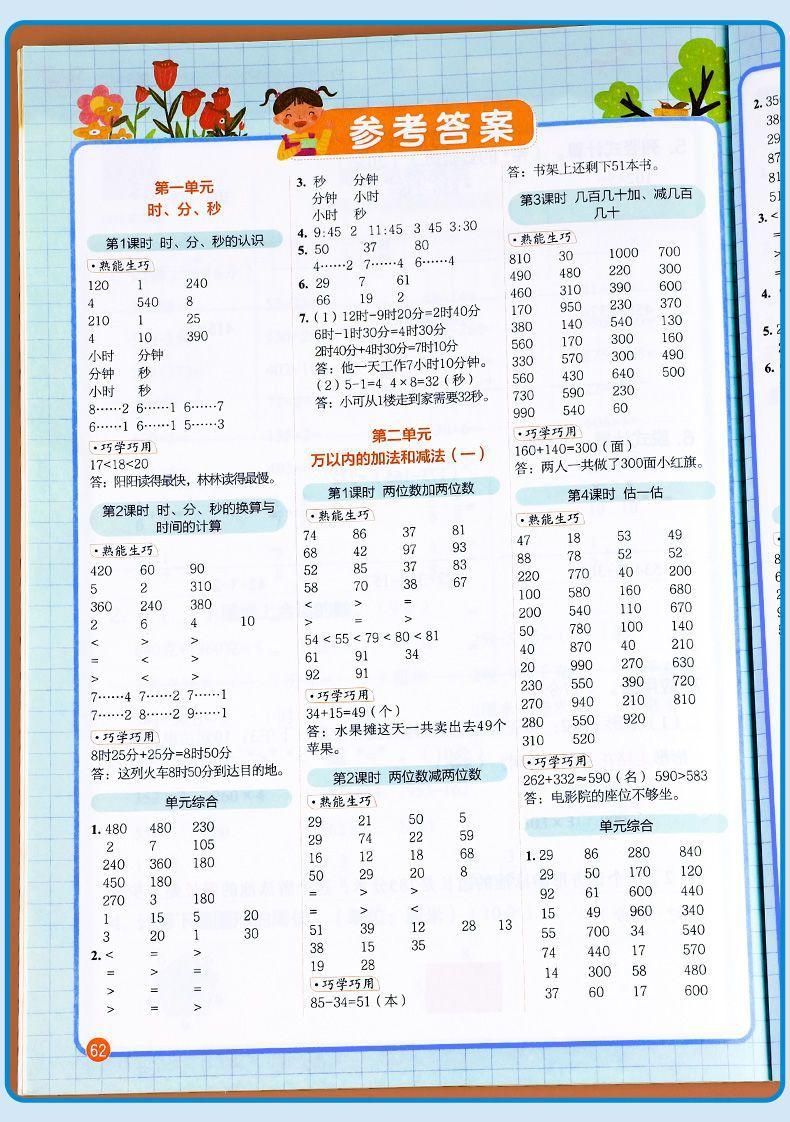 参考答案
第一单元
时、分、秒
第1课时 时、分、秒的认识
·熟能生巧
120 1 240
4 540 8
210 1 25
4 10 390
小时 分钟
分钟 秒
小时 秒
8……2 6……1 6……7
6……1 6……1 5……3
·巧学巧用
17<18<20
答：阳阳读得最快，林林读得最慢。
第2课时 时、分、秒的换算与
时间的计算
·熟能生巧
420 60 90
5 2 310
360 240 380
2 6 4 10
< > >
= < >
> < >
7……4 7……2 7……1
7……2 8……2 9……1
·巧学巧用
8时25分+25分=8时50分
答：这列火车8时50分到达目的地。
单元综合
1. 480 480 230
2 7 105
240 360 180
450 180
270 3 180
1 15 5 20
3 20 1 30
2. < = >
= > =
> = =
> = >
62
3. 秒 分钟
分钟 小时
小时 秒
4. 9:45 2 11:45 3 45 3:30
5. 50 37 80
4……2 7……4 6……4
6. 29 7 61
66 19 2
7.（1）12时-9时20分=2时40分
6时-1时30分=4时30分
2时40分+4时30分=7时10分
答：他一天工作7小时10分钟。
（2）5-1=4 4×8=32（秒）
答：小可从1楼走到家需要32秒。
第二单元
万以内的加法和减法（一）
第1课时 两位数加两位数
·熟能生巧
74 86 37 81
68 42 97 93
52 85 37 83
58 70 38 67
< > =
> = >
54 < 55 < 79 < 80 < 81
61 91 34
92 91
·巧学巧用
34+15=49（个）
答：水果摊这天一共卖出去49个
苹果。
第2课时 两位数减两位数
·熟能生巧
29 21 50 5
29 74 22 59
16 12 18 68
50 29 20 8
= > >
= > <
51 39 12 28 13
38 15 35
19 28
·巧学巧用
85-34=51（本）
答：书架上还剩下51本书。
第3课时 几百几十加、减几百
几十
·熟能生巧
810 30 1000 700
490 480 220 300
460 310 390 600
170 950 230 370
380 140 540 130
560 170 300 160
330 570 300 490
560 430 640 500
730 590 230
990 540 60
·巧学巧用
160+140=300（面）
答：两人一共做了300面小红旗。
第4课时 估一估
·熟能生巧
47 18 53 49
88 78 52 52
220 770 40 200
100 580 160 680
200 540 110 670
50 780 100 140
40 870 40 210
20 990 270 630
230 550 390 720
270 940 210 810
280 550 920
310 520
·巧学巧用
262+332≈590（名） 590>583
答：电影院的座位不够坐。
单元综合
1. 29 86 280 840
29 50 170 120
92 61 600 440
15 49 960 340
55 700 34 540
74 440 17 570
14 300 58 480
37 60 17 600